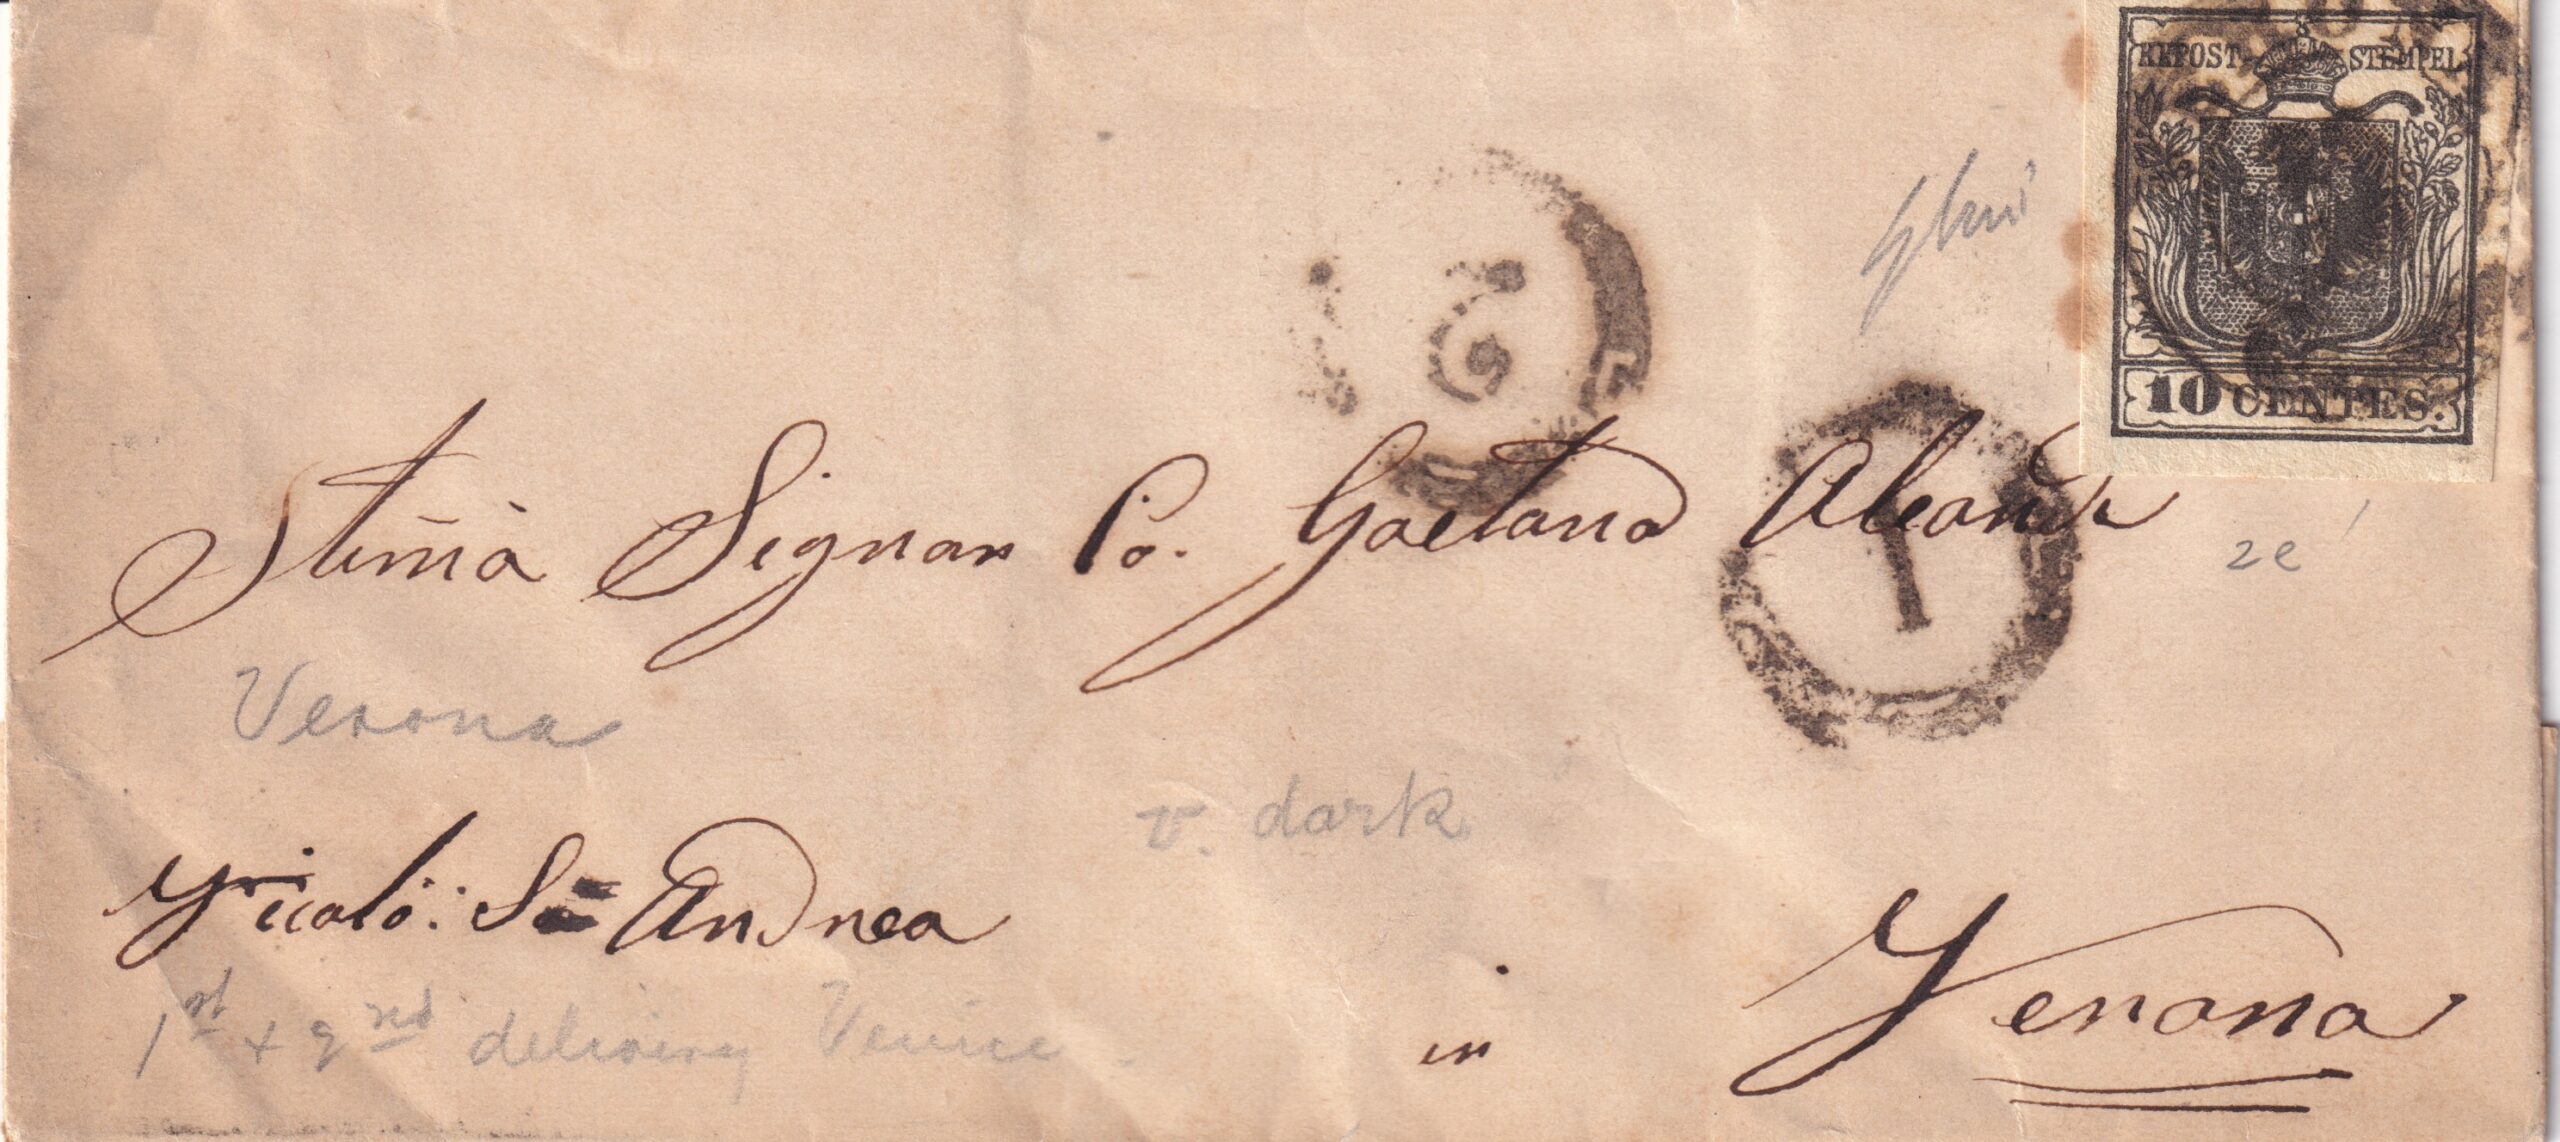 KKPOST-STEMPEL
10 CENTES.
Stima Signor Co. Gaetano
2e
Verona
v. dark
Vicolo: Sn Andrea
1st + 2nd delivery Venice.
in Verona
1